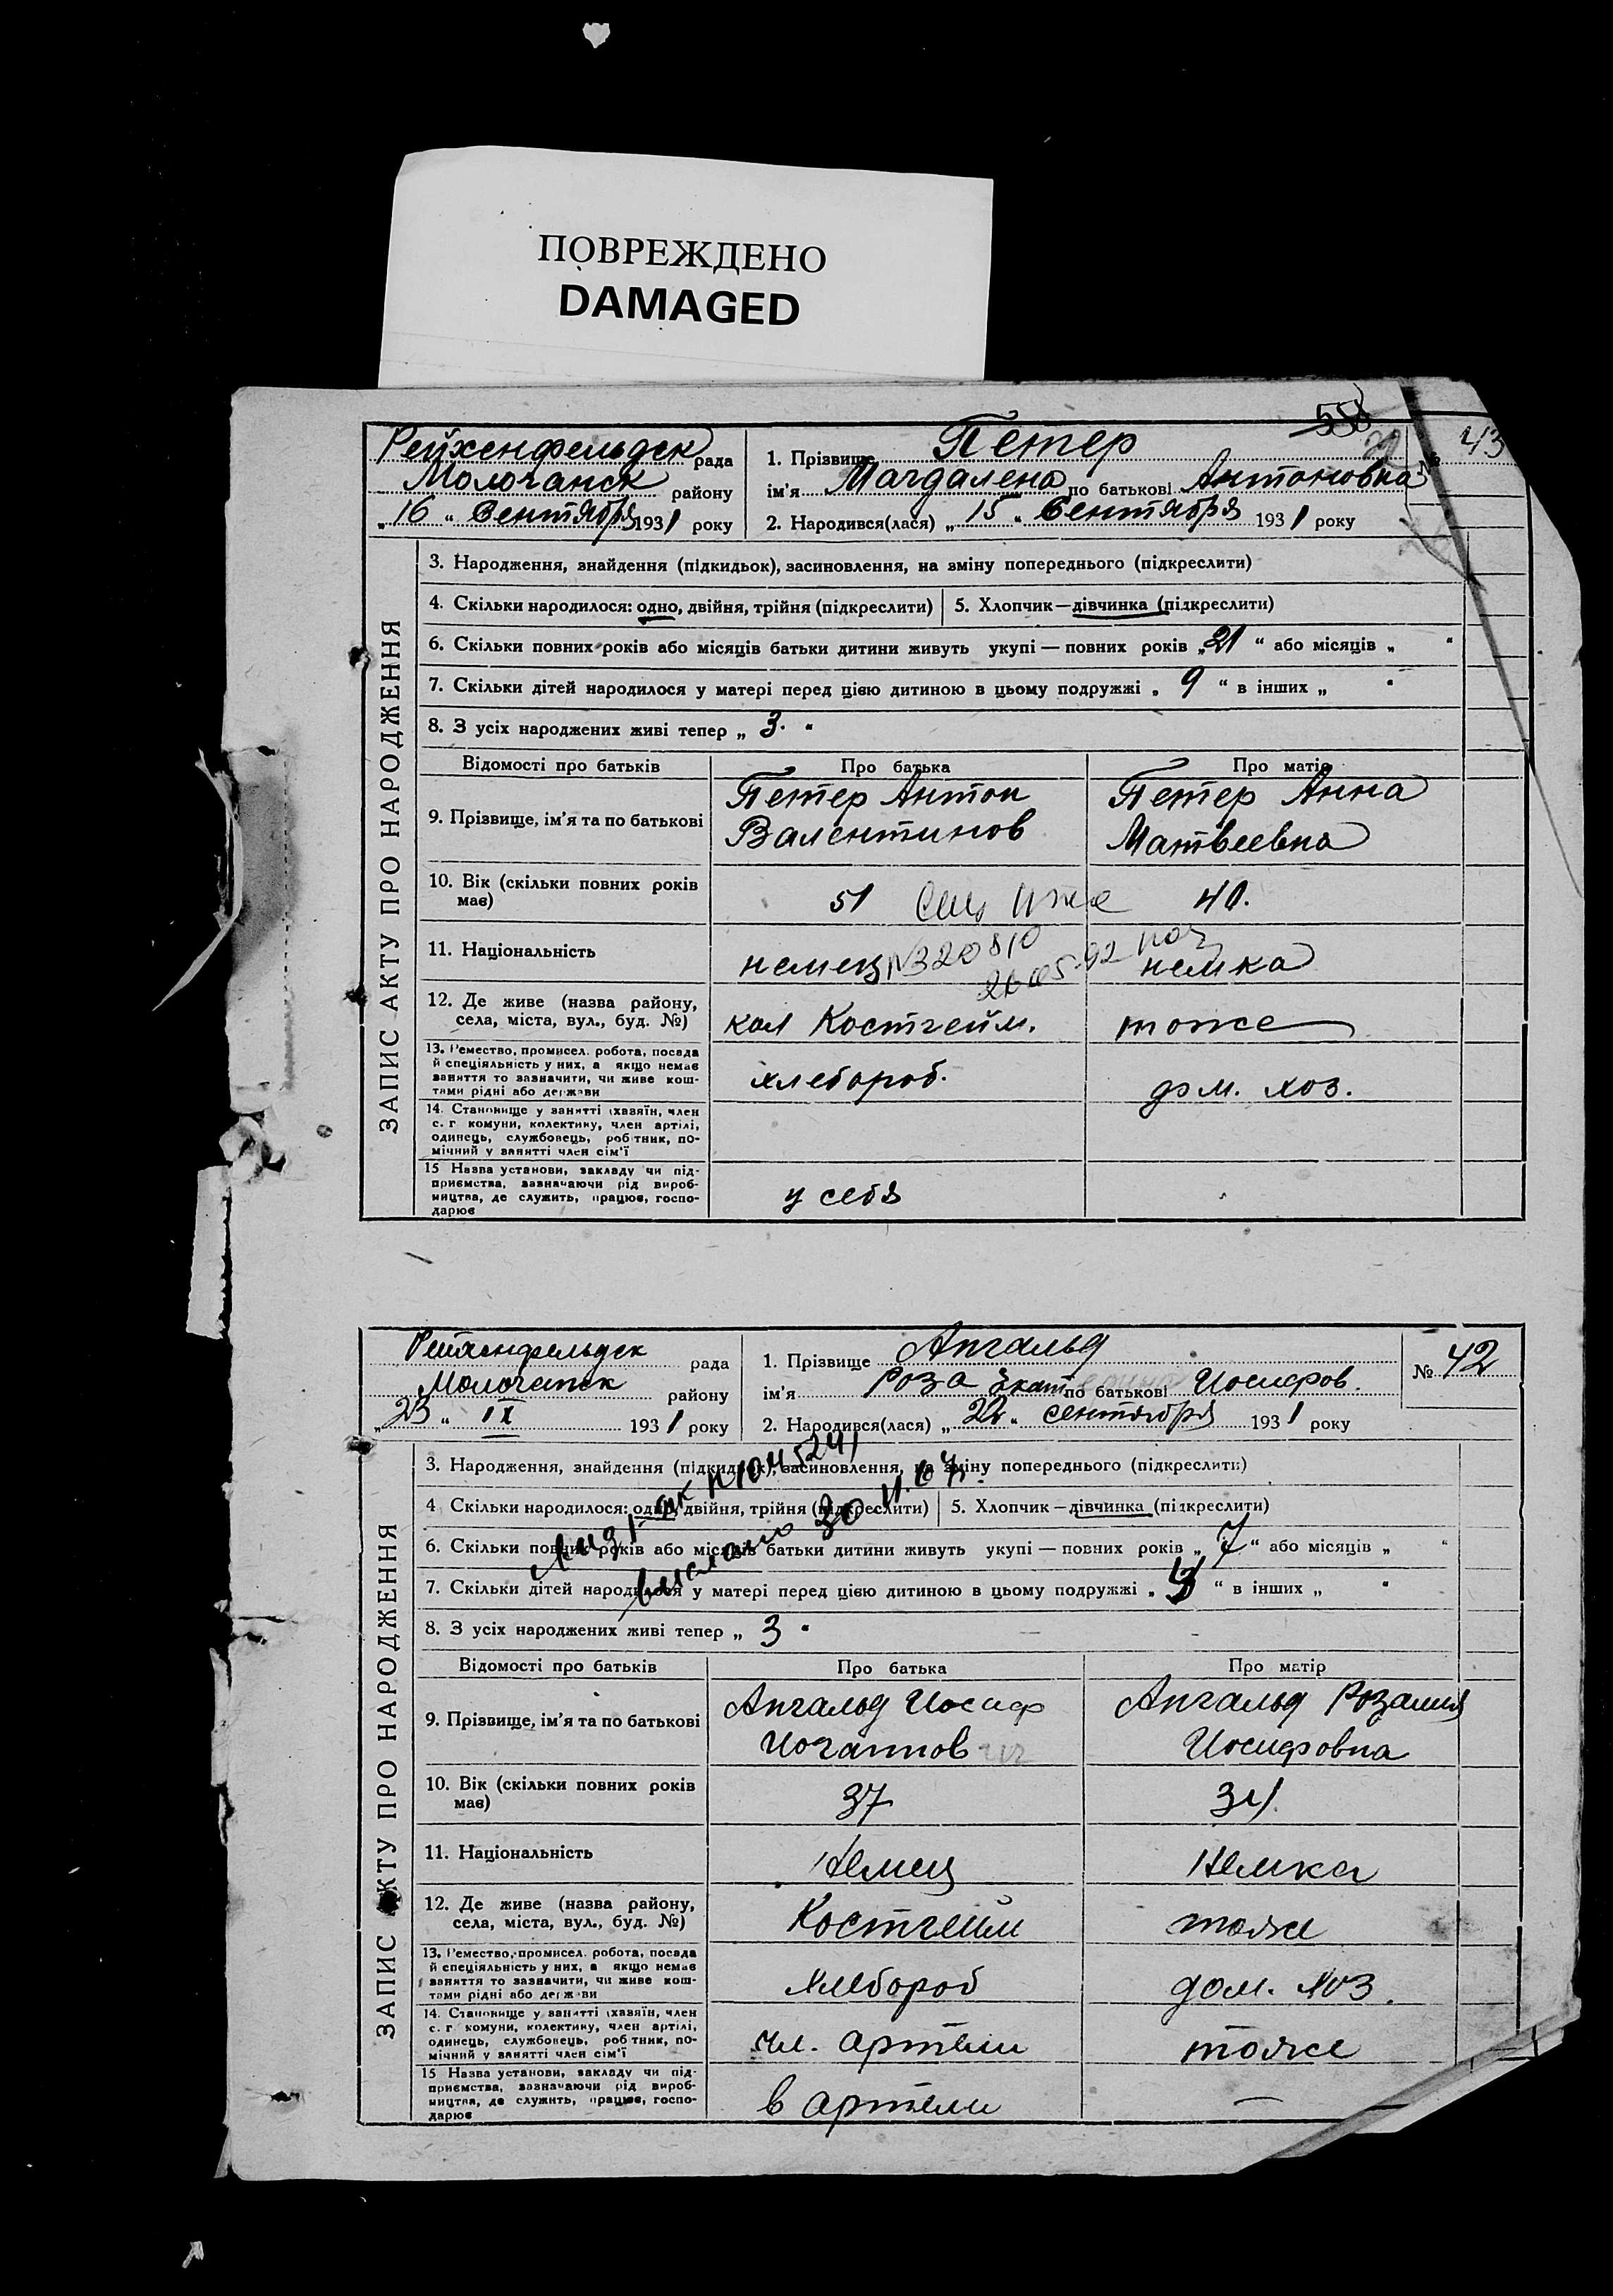 ПОВРЕЖДЕНО
DAMAGED
558
Рейхенфельдск рада
Молочанск району
„16“ Сентября 1931 року
1. Прізвище Петер
ім'я Магдалена по батькові Антоновна
2. Народився(лася) „15“ Сентября 1931 року
№ 43
ЗАПИС АКТУ ПРО НАРОДЖЕННЯ
3. Народження, знайдення (підкидьок), засиновлення, на зміну попереднього (підкреслити)
4. Скільки народилося: одно, двійня, трійня (підкреслити) 5. Хлопчик—дівчинка (підкреслити)
6. Скільки повних років або місяців батьки дитини живуть укупі — повних років „21“ або місяців „ “
7. Скільки дітей народилося у матері перед цією дитиною в цьому подружжі „ 9 “ в інших „ “
8. З усіх народжених живі тепер „ 3. “
Відомості про батьків Про батька Про матір
9. Прізвище, ім'я та по батькові Петер Антон Валентинов Петер Анна Матвеевна
10. Вік (скільки повних років має) 51 41.
11. Національність немец немка
№320810
26 05-92
12. Де живе (назва району, села, міста, вул., буд. №) кол Костгейм. тоже
13. Ремество, промисел. робота, посада й спеціяльність у них, а якщо немає заняття то зазначити, чи живе коштами рідні або держави хлебороб. дом. хоз.
14. Становище у занятті (хазяїн, член с. г комуни, колективу, член артілі, одинець, службовець, робітник, помічний у занятті член сім'ї
15 Назва установи, закладу чи підприємства, зазначаючи рід виробництва, де служить, працює, господарює у себя
Рейхенфельдск рада
Молочанск району
„23“ IX 1931 року
1. Прізвище Ангальд
ім'я Роза Екатерина по батькові Иосифов.
2. Народився(лася) „22“ сентября 1931 року
№ 42
ЗАПИС АКТУ ПРО НАРОДЖЕННЯ
3. Народження, знайдення (підкидьок), засиновлення, на зміну попереднього (підкреслити)
4 Скільки народилося: одно, двійня, трійня (підкреслити) 5. Хлопчик—дівчинка (підкреслити)
6. Скільки повних років або місяців батьки дитини живуть укупі — повних років „ 7 “ або місяців „ “
7. Скільки дітей народилося у матері перед цією дитиною в цьому подружжі „ “ в інших „ “
8. З усіх народжених живі тепер „ 3 “
Відомості про батьків Про батька Про матір
9. Прізвище, ім'я та по батькові Ангальд Иосиф Иоганнович Ангальд Розалия Иосифовна
10. Вік (скільки повних років має) 37 34
11. Національність Немец Немка
12. Де живе (назва району, села, міста, вул., буд. №) Костгейм тоже
13. Ремество, промисел. робота, посада й спеціяльність у них, а якщо немає заняття то зазначити, чи живе коштами рідні або держави Хлебороб дом. хоз.
14. Становище у занятті (хазяїн, член с. г комуни, колективу, член артілі, одинець, службовець, робітник, помічний у занятті член сім'ї чл. артели тоже
15 Назва установи, закладу чи підприємства, зазначаючи рід виробництва, де служить, працює, господарює в артели —